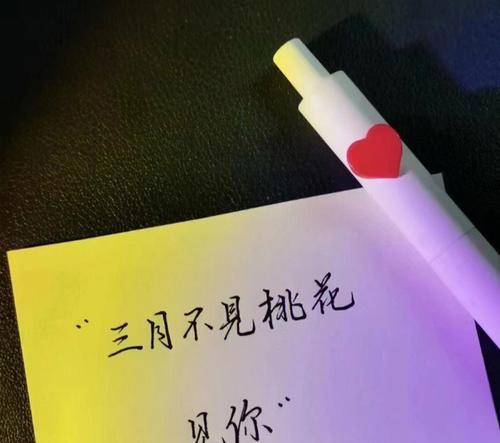 “三月不见桃花
见你”